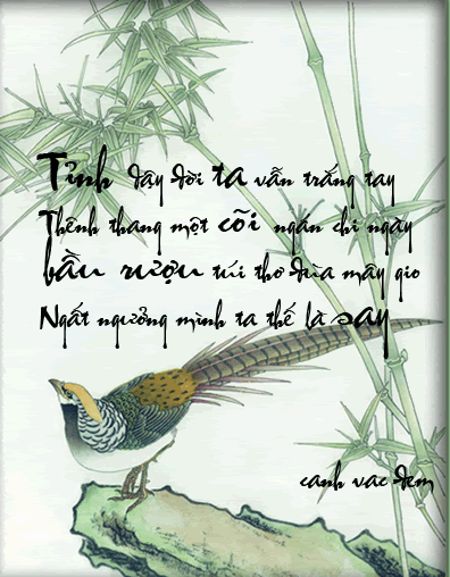 Tỉnh dậy đời ta vẫn trắng tay
Thênh thang một cõi ngán chi ngày
bầu rượu túi thơ đùa mây gio
Ngất ngưởng mình ta thế là say
canh vac dem